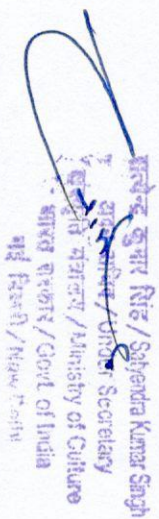 कुमार सिंह / Satyendra Kumar Singh
सचिव / Under Secretary
संस्कृति मंत्रालय / Ministry of Culture
भारत सरकार / Govt. of India
नई दिल्ली / New Delhi